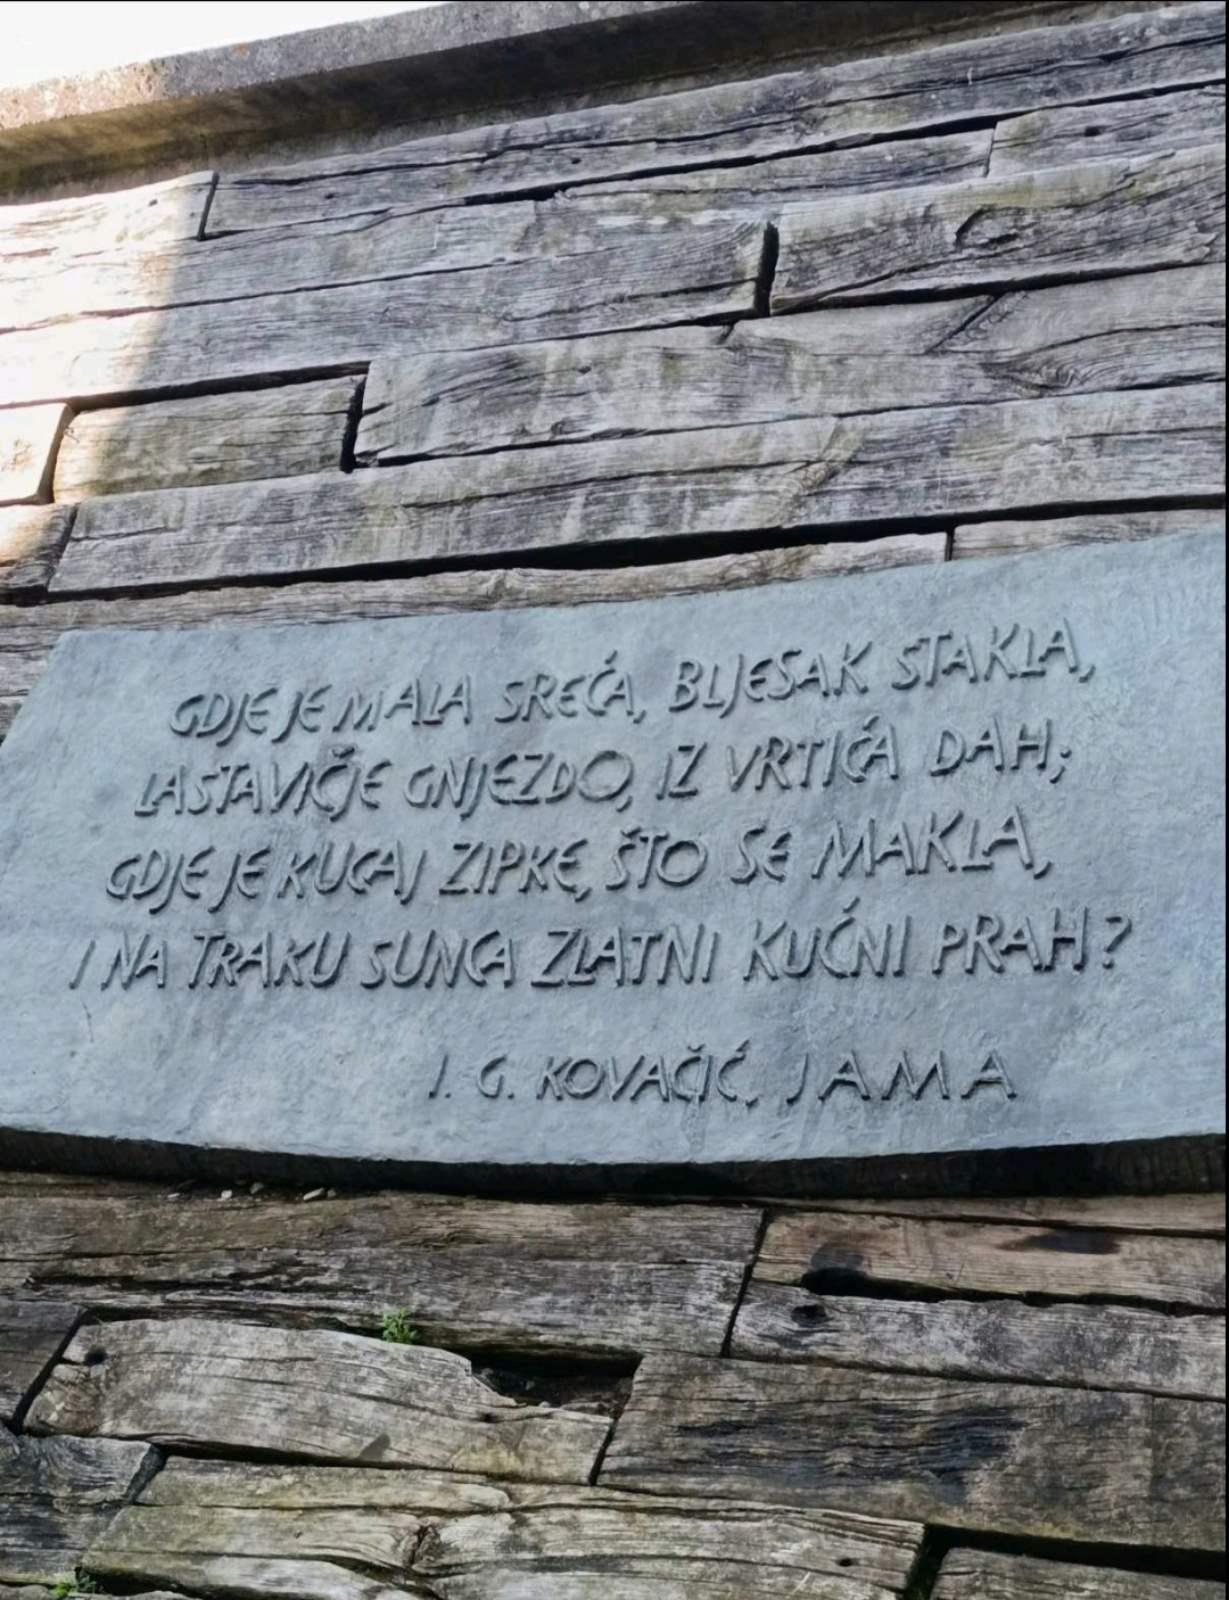 GDJE JE MALA SREĆA, BLJESAK STAKLA,
LASTAVIČJE GNJEZDO, IZ VRTIĆA DAH;
GDJE JE KUCAJ ZIPKE, ŠTO SE MAKLA,
I NA TRAKU SUNCA ZLATNI KUĆNI PRAH?
I. G. KOVAČIĆ, JAMA